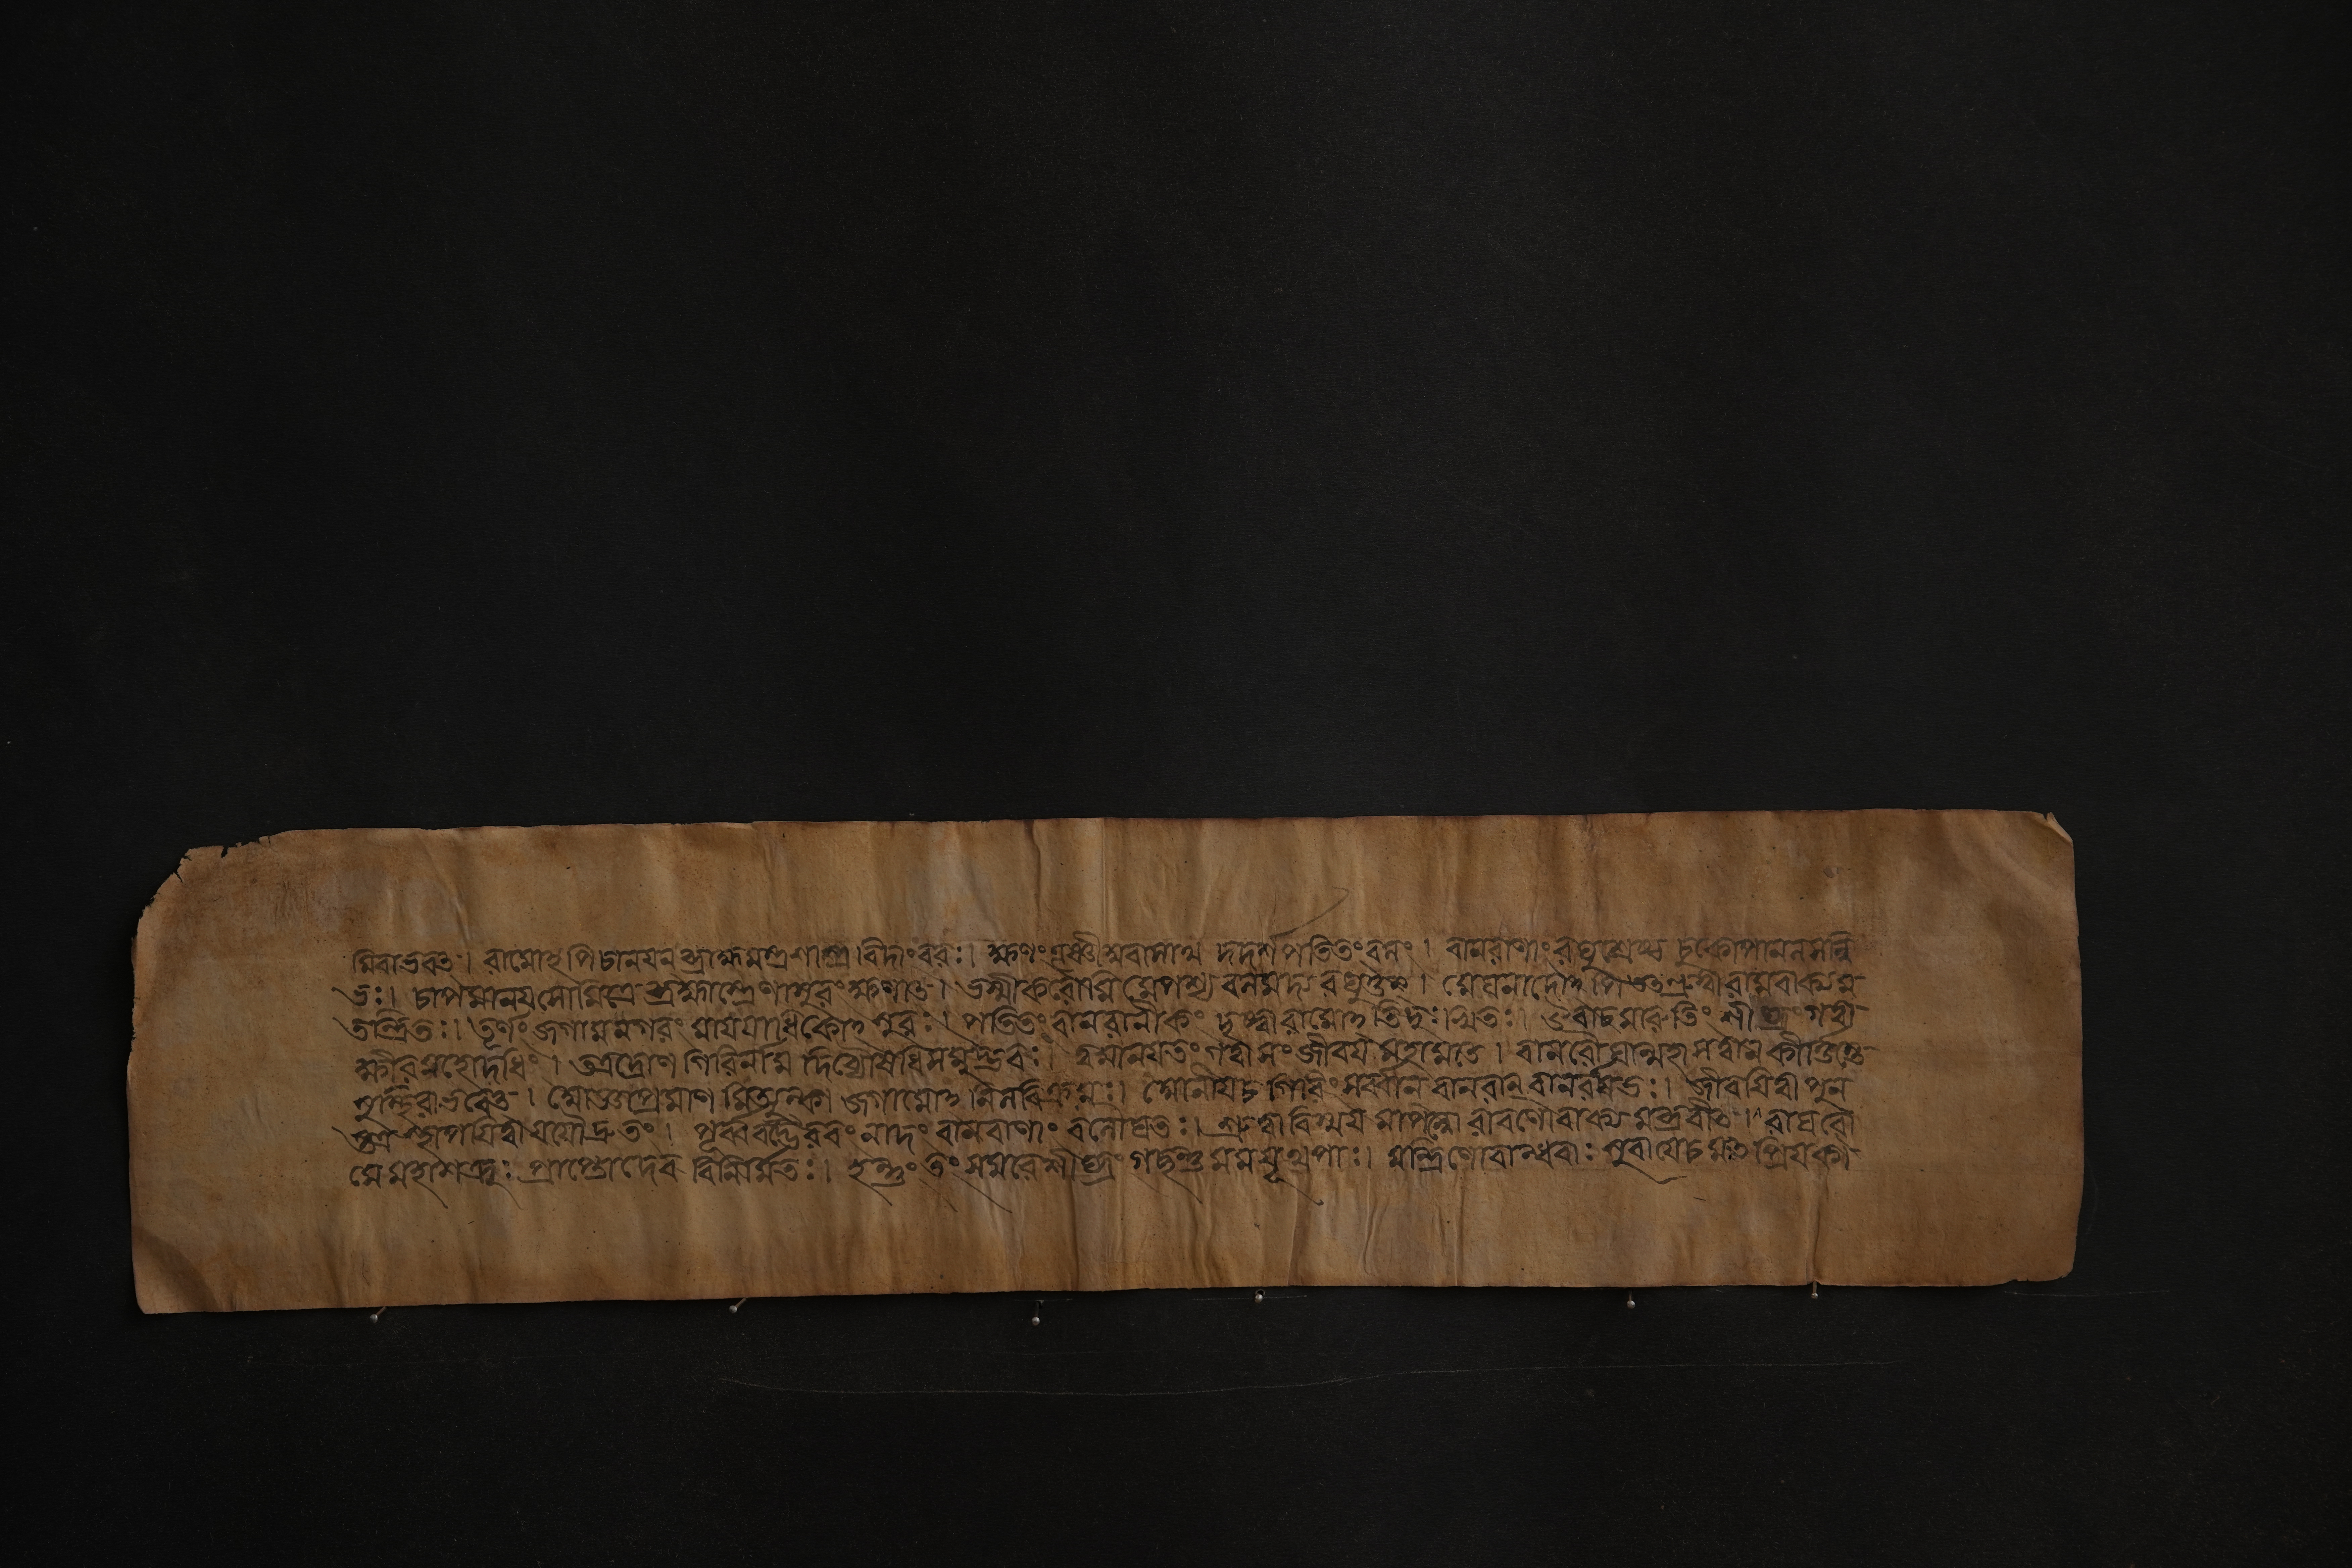 মিবাভবৎ । রামোঽপি চানয়ন ব্রাহ্মমস্ত্রশাস্ত্র বিদাংবরঃ । ক্ষণং তূষ্ণীমুবাসাথ দদর্শ পতিতং বলং । বানরাণাং রঘুশ্রেষ্ঠ চুকোপানলসন্নি
ভঃ । চাপমানয় সৌমিত্রে ব্রহ্মাস্ত্রেণাসুরং ক্ষণাৎ । ভস্মীকরোমি মে পশ্য বলমদ্য রঘুত্তম । মেঘনাদোঽপি তৎশ্রুত্বা রামবাক্যম
তন্দ্রিতঃ । তূর্ণং জগাম নগরং মায়য়া ধিকোঽসুরঃ । পতিতং বানরানীকং দৃষ্ট্বা রামোঽতিদুঃখিতঃ । উবাচ মারুতিং শীঘ্রং গত্বা
ক্ষীরমহোদধিং । তত্র দ্রোণ গিরির্নাম দিব্যৌষধিসমুদ্ভবঃ । তমানয় দ্রুতং গত্বা সংজীবয় মহামতে । বানরৌঘান্মহাসত্বান কীর্ত্তিস্তে
সুস্থিরা ভবেৎ । আজ্ঞা প্রমাণ মিত্যুক্ত্বা জগামানিলবিক্রমঃ । আনীয় চ গিরিং সর্ব্বান বানরান্ বানরর্ষভঃ । জীবয়িত্বা পুন
স্তত্র স্থাপয়িত্বা যযৌ দ্রুতং । পূর্ব্ববদ্ভৈরবং নাদং বানরাণাং বলৌঘতঃ । শ্রুত্বা বিস্ময় মাপন্নো রাবণো বাক্য মব্রবীৎ । রাঘবো
মে মহাশত্রুঃ প্রাপ্তো দেব বিনির্মিতঃ । হন্তুং তং সমরে শীঘ্রং গচ্ছন্তু মম যূথপাঃ । মন্ত্রিণো বান্ধবাঃ শূরা যে চ মৎ প্রিয়কা